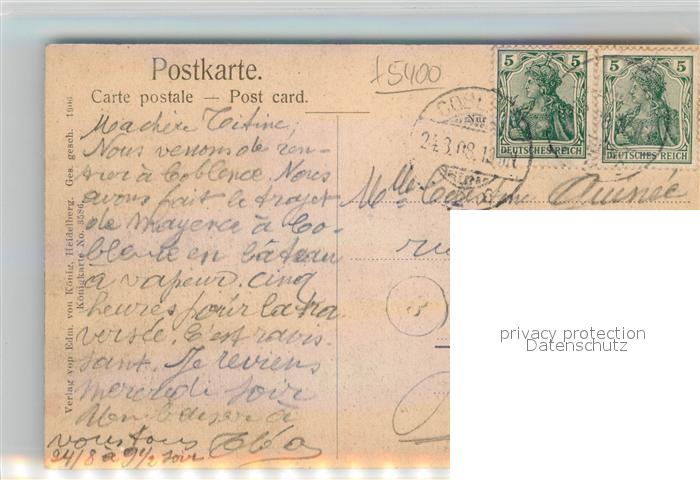 Postkarte.
Carte postale — Post card.
75400
5 5
DEUTSCHES REICH
5 5
DEUTSCHES REICH
24.8.08.12
Ma chère Titine,
Nous venons de ren-
trer à Coblence. Nous
avons fait le trajet
de Mayence à Co-
blence en bâteau
à vapeur. cinq
heures pour la tra
versée. C'est ravis
sant. Je reviens
mercredi soir
Mon baiser à
vous tous
24/8 à 9 1/2 soir
Mlle
Verlag von Edm. von König, Heidelberg. Ges. gesch. 1906
Königkarte No. 3586.
privacy protection
Datenschutz